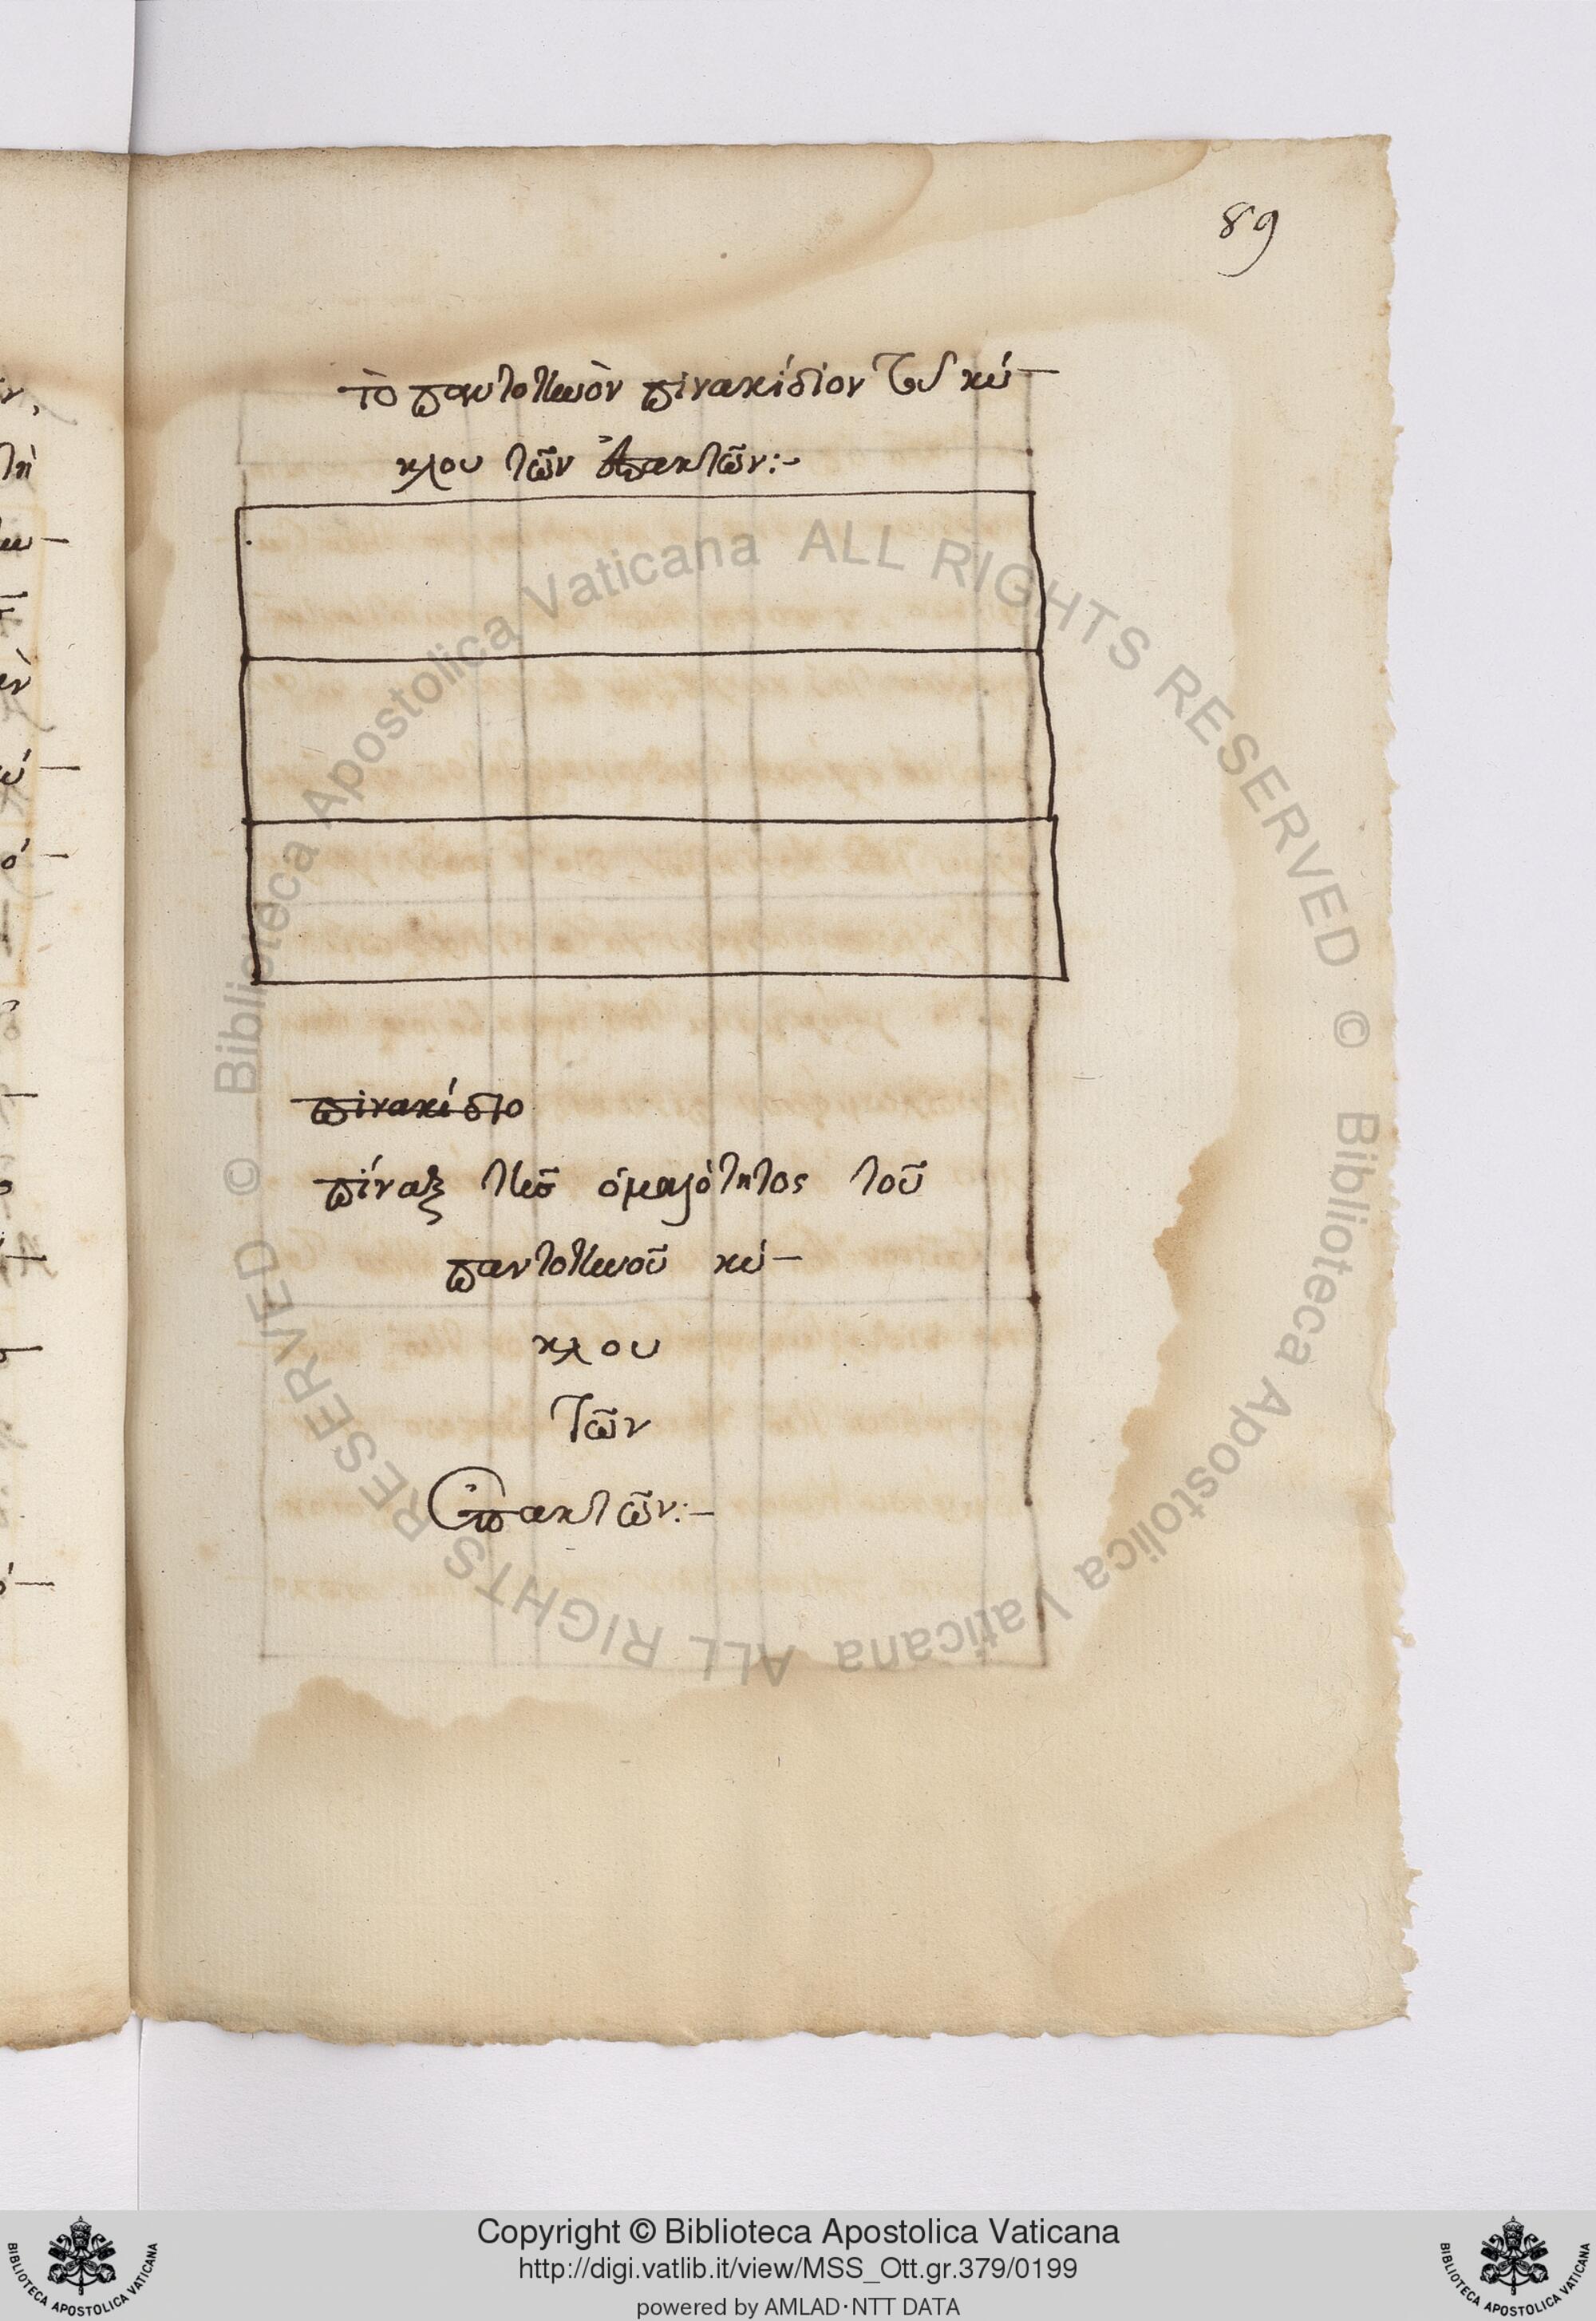 89
τὸ παντοτινὸν πινακίδιον τοῦ κύ-
κλου τῶν ἐπακτῶν:-
πινακίδιο
πίναξ τῆσ ὁμαλότητος τοῦ
παντοτινοῦ κύ-
κλου
Τῶν
ἐπακτῶν:-
© Biblioteca Apostolica Vaticana ALL RIGHTS RESERVED © Biblioteca Apostolica Vaticana ALL RIGHTS RESERVED
BIBLIOTECA APOSTOLICA VATICANA
Copyright © Biblioteca Apostolica Vaticana
http://digi.vatlib.it/view/MSS_Ott.gr.379/0199
powered by AMLAD·NTT DATA
BIBLIOTECA APOSTOLICA VATICANA